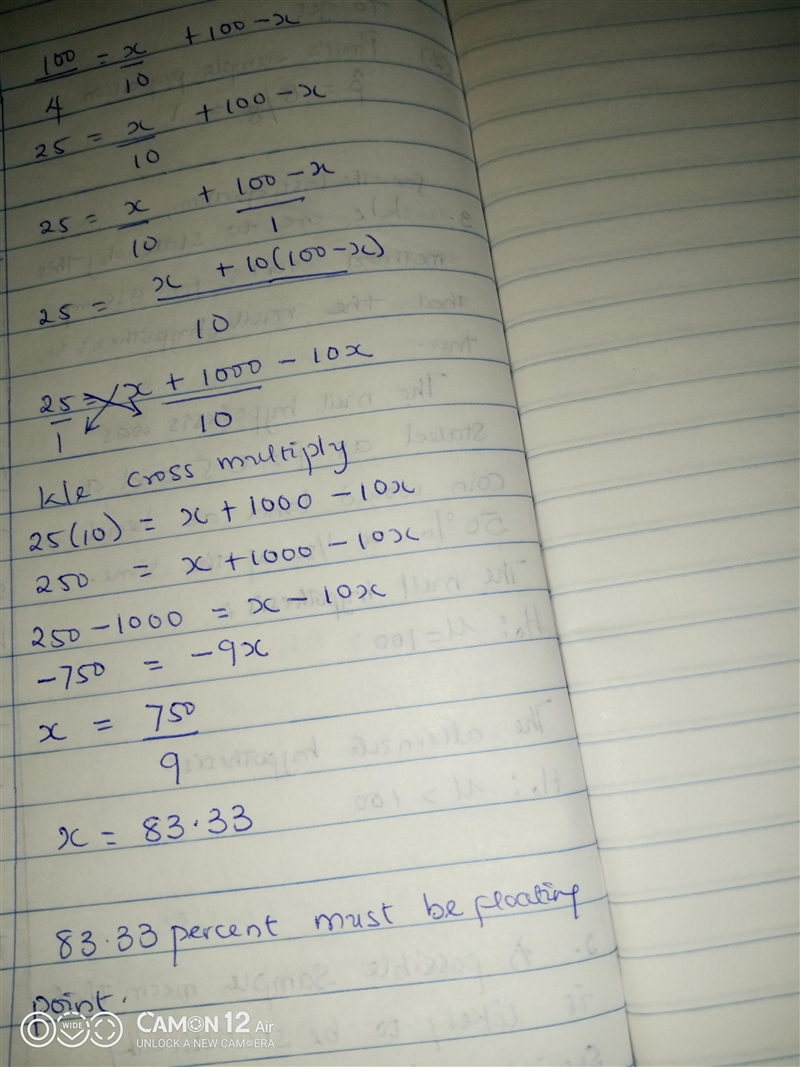 100/4 = x/10 + 100 - x
25 = x/10 + 100 - x
25 = x/10 + 100 - x/1
25 = x + 10(100 - x)/10
25/1 = x + 1000 - 10x/10
k/e cross multiply
25(10) = x + 1000 - 10x
250 = x + 1000 - 10x
250 - 1000 = x - 10x
-750 = -9x
x = 750/9
x = 83.33
83.33 percent must be floating
point.
WIDE CAMON 12 Air
UNLOCK A NEW CAMERA